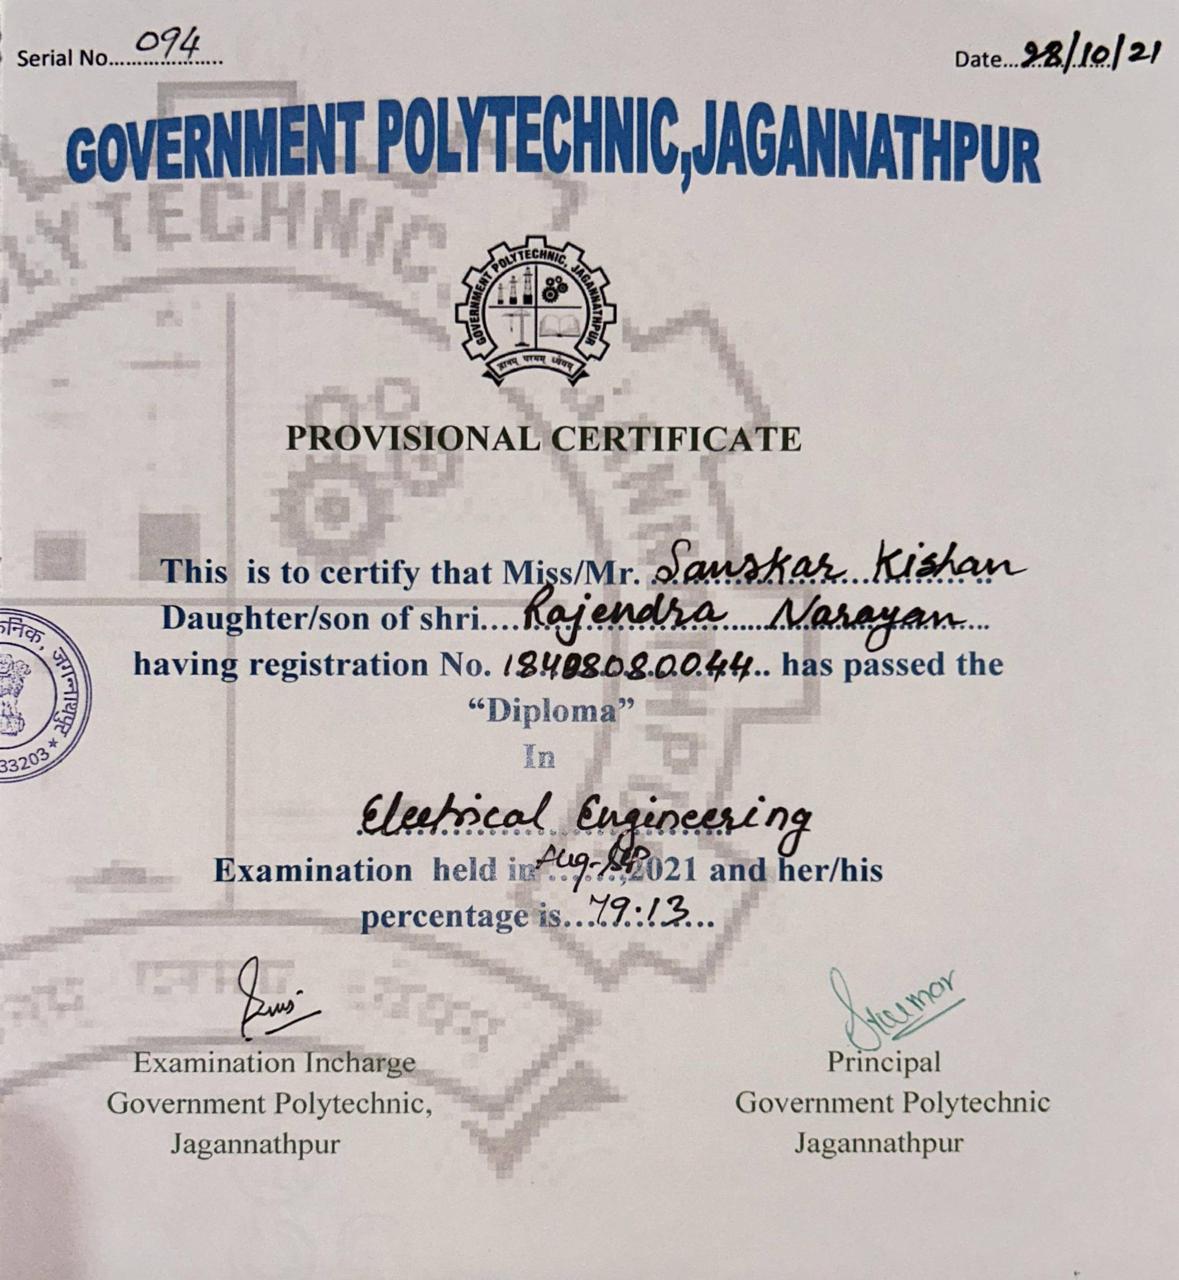 Serial No. 094
Date 28/10/21
GOVERNMENT POLYTECHNIC,JAGANNATHPUR
GOVERNMENT POLYTECHNIC, JAGANNATHPUR
ज्ञानम् परमम् ध्येयम्
PROVISIONAL CERTIFICATE
This is to certify that Miss/Mr. Sanskar Kishan
Daughter/son of shri....Rajendra Narayan
having registration No. 18408080044.. has passed the
“Diploma”
In
Electrical Engineering
Examination held in Aug-Sep,2021 and her/his
percentage is...79.13...
Examination Incharge
Government Polytechnic,
Jagannathpur
Kumar
Principal
Government Polytechnic
Jagannathpur
33203 *